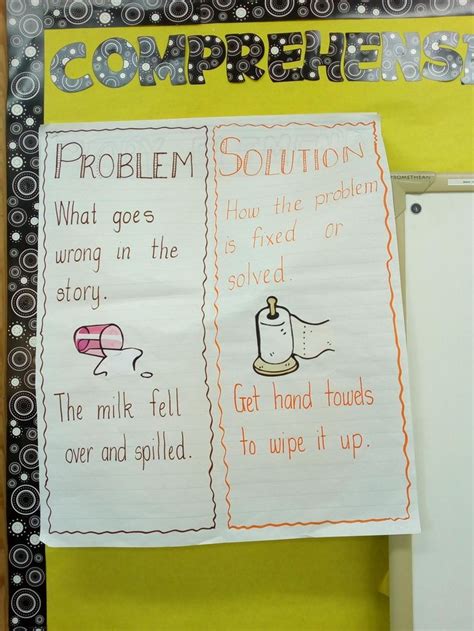 COMPREHENS
PROBLEM
What goes
wrong in the
story.
The milk fell
over and spilled.
SOLUTION
How the problem
is fixed or
solved.
Get hand towels
to wipe it up.
PROMETHEAN